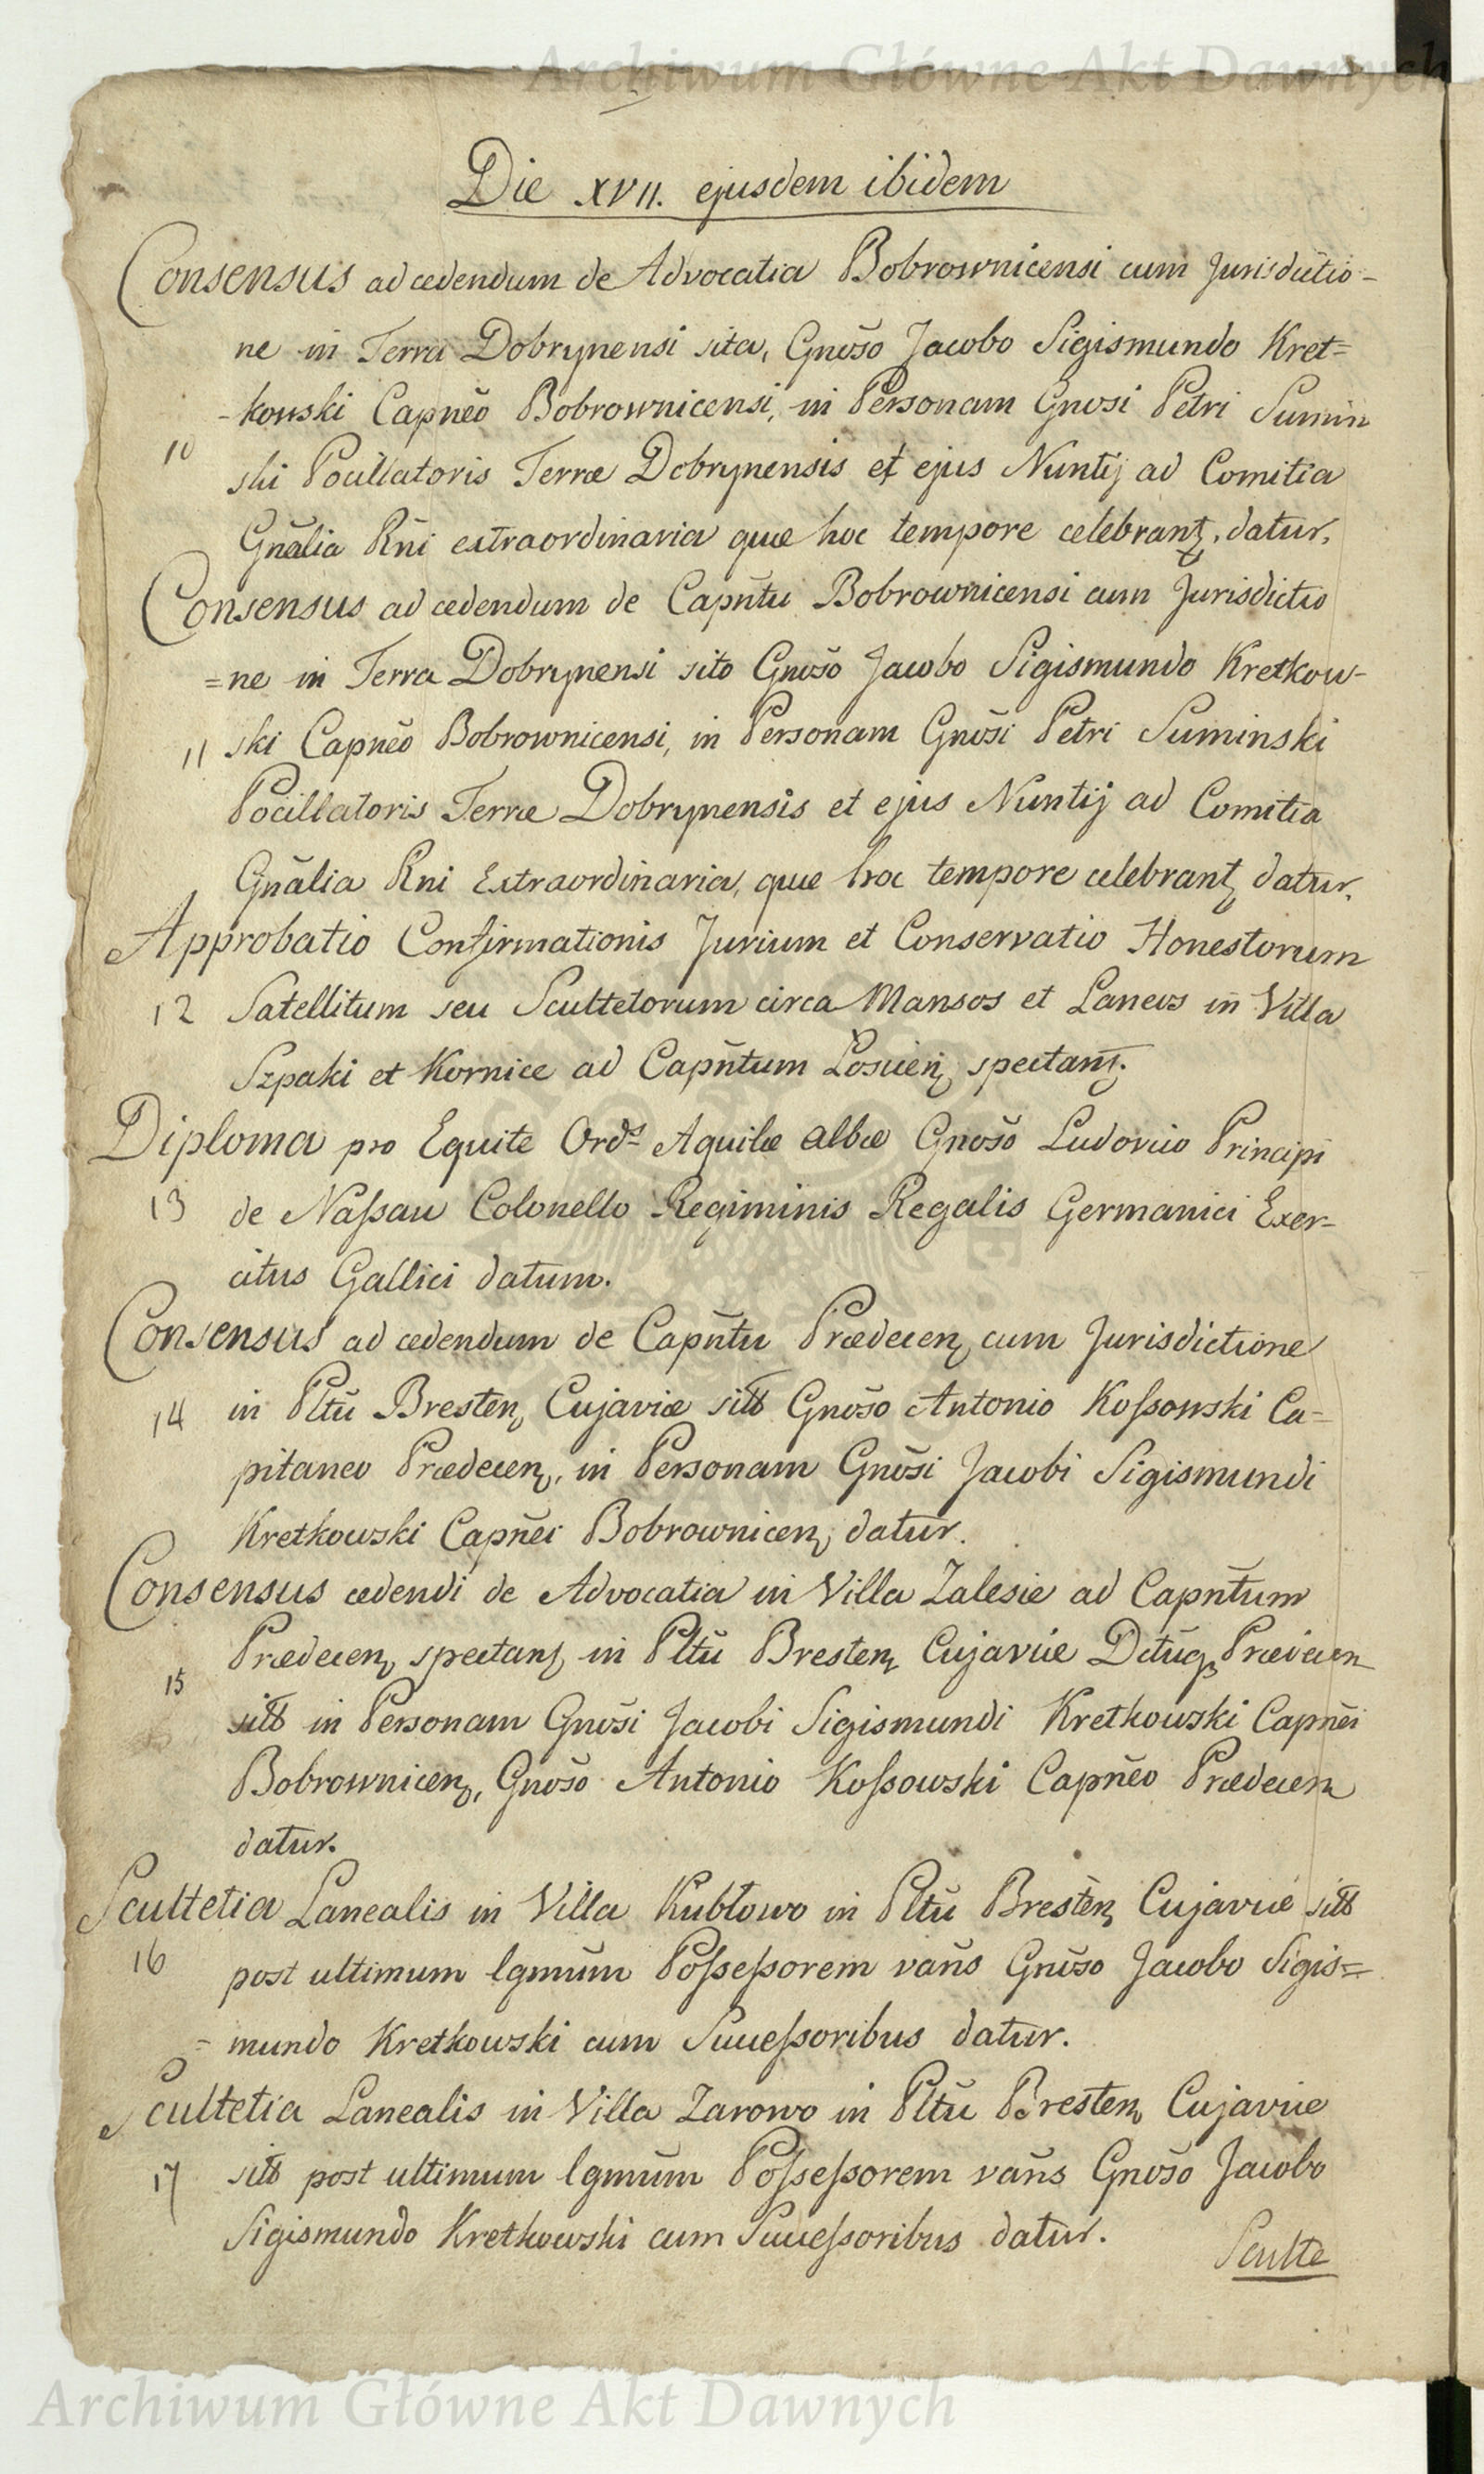 Archiwum Główne Akt Dawnych
Die XVII. ejusdem ibidem
Consensus ad cedendum de Advocatia Bobrownicensi cum Jurisdictio-
ne in Terra Dobrynensi sita, Gnoso Jacobo Sigismundo Kret=
-kowski Capneo Bobrownicensi, in Personam Gnosi Petri Sumin
10
ski Pocillatoris Terræ Dobrynensis et ejus Nuntij ad Comitia
Gnalia Rni extraordinaria quæ hoc tempore celebrant, datur.
Consensus ad cedendum de Capntu Bobrownicensi cum Jurisdictio
=ne in Terra Dobrynensi sito Gnoso Jacobo Sigismundo Kretkow-
11 ski Capneo Bobrownicensi, in Personam Gnosi Petri Suminski
Pocillatoris Terræ Dobrynensis et ejus Nuntij ad Comitia
Gnalia Rni Extraordinaria, quæ hoc tempore celebrant datur.
Approbatio Confirmationis Jurium et Conservatio Honestorum
12 Satellitum seu Scultetorum circa Mansos et Laneos in Villa
Szpaki et Kornice ad Capntum Losicen spectant.
Diploma pro Equite Ords Aquilæ albæ Gnoso Ludovico Principi
13 de Naſsau Colonello Regiminis Regalis Germanici Exer-
citus Gallici datum.
Consensus ad cedendum de Capntu Prædecen cum Jurisdictione
14 in Pltu Bresten Cujaviæ sitt Gnoso Antonio Koſsowski Ca=
pitaneo Prædecen, in Personam Gnosi Jacobi Sigismundi
Kretkowski Capnei Bobrownicen datur.
Consensus cedendi de Advocatia in Villa Zalesie ad Capntum
Prædecen spectant in Pltu Bresten Cujaviæ Prædecen
15
sitt in Personam Gnosi Jacobi Sigismundi Kretkowski Capnei
Bobrownicen, Gnoso Antonio Koſsowski Capneo Prædecen
datur.
Scultetia Lanealis in Villa Kubłowo in Pltu Bresten Cujaviæ sitt
16 post ultimum lgmum Poſseſsorem vans Gnoso Jacobo Sigis=
=mundo Kretkowski cum Succeſsoribus datur.
Scultetia Lanealis in Villa Zarowo in Pltu Bresten Cujaviæ
17 sitt post ultimum lgmum Poſseſsorem vans Gnoso Jacobo
Sigismundo Kretkowski cum Succeſsoribus datur.
Sculte
Archiwum Główne Akt Dawnych